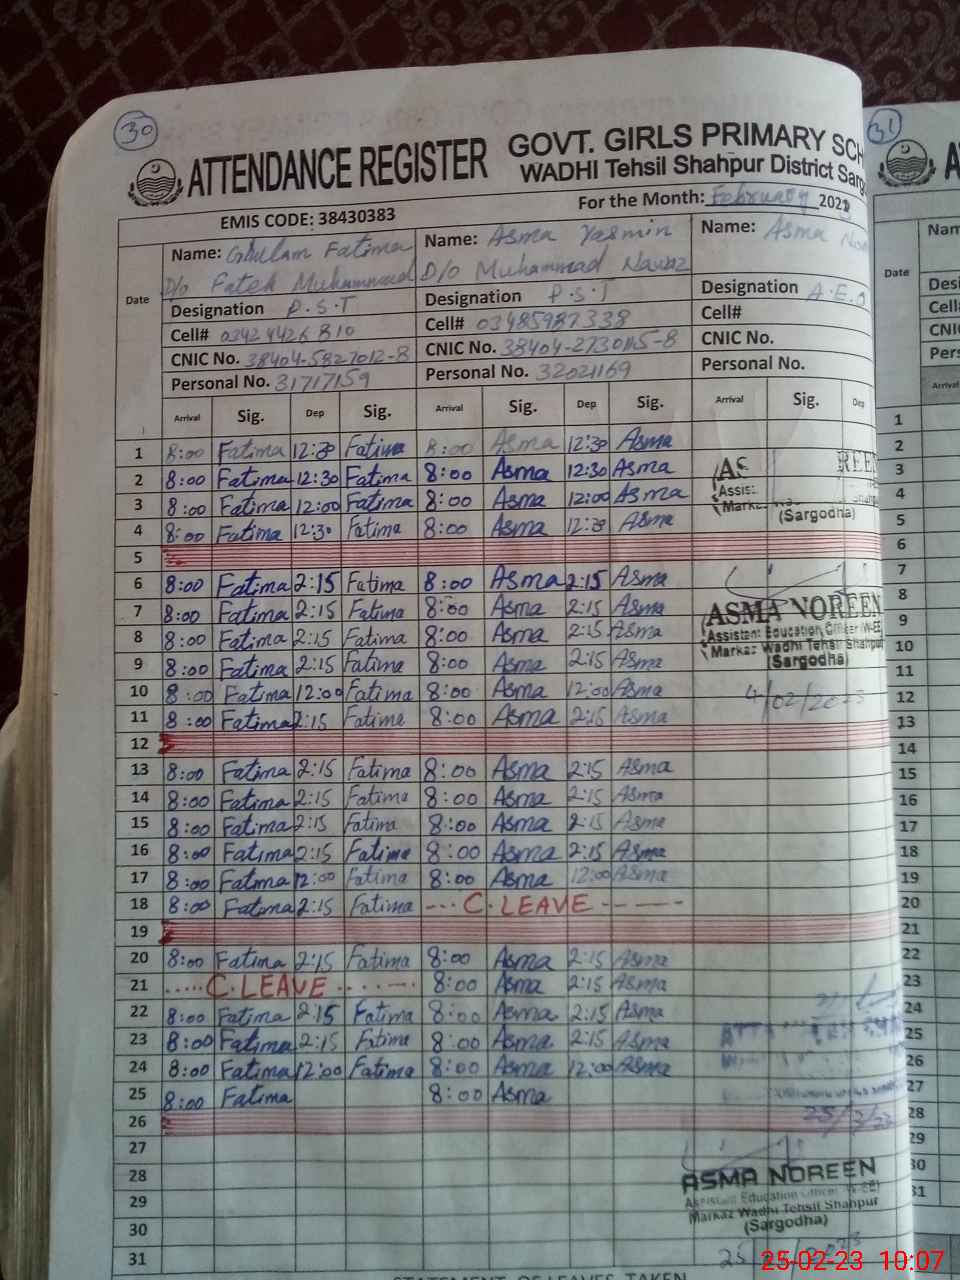 30
31
ATTENDANCE REGISTER
GOVT. GIRLS PRIMARY SCH
WADHI Tehsil Shahpur District Sargo
EMIS CODE: 38430383
For the Month: February 202
Date
Name: Ghulam Fatima Name: Asma Yasmin Name: Asma
D/o Fateh Muhammad D/o Muhammad Nawaz
Designation P.S.T Designation P.S.T Designation A.E.O
Cell# 0342 4426 810 Cell# 03485987338 Cell#
CNIC No. 38404-5827012-8 CNIC No. 38404-2730115-8 CNIC No.
Personal No. 31717159 Personal No. 32021169 Personal No.
Arrival Sig. Dep Sig. Arrival Sig. Dep Sig. Arrival Sig. Dep
1 8:00 Fatima 12:30 Fatima 8:00 Asma 12:30 Asma
2 8:00 Fatima 12:30 Fatima 8:00 Asma 12:30 Asma
3 8:00 Fatima 12:00 Fatima 8:00 Asma 12:00 Asma
4 8:00 Fatima 12:30 Fatima 8:00 Asma 12:30 Asma
(Sargodha)
5
6 8:00 Fatima 2:15 Fatima 8:00 Asma 2:15 Asma
7 8:00 Fatima 2:15 Fatima 8:00 Asma 2:15 Asma
ASMA NOREEN
8 8:00 Fatima 2:15 Fatima 8:00 Asma 2:15 Asma
Assistant Education Officer (W-EE)
Markaz Wadhi Tehsil Shahpur
9 8:00 Fatima 2:15 Fatima 8:00 Asma 2:15 Asma
(Sargodha)
10 8:00 Fatima 12:00 Fatima 8:00 Asma 12:00 Asma
4/02/2023
11 8:00 Fatima 2:15 Fatima 8:00 Asma 2:15 Asma
12
13 8:00 Fatima 2:15 Fatima 8:00 Asma 2:15 Asma
14 8:00 Fatima 2:15 Fatima 8:00 Asma 2:15 Asma
15 8:00 Fatima 2:15 Fatima 8:00 Asma 2:15 Asma
16 8:00 Fatima 2:15 Fatima 8:00 Asma 2:15 Asma
17 8:00 Fatima 12:00 Fatima 8:00 Asma 12:00 Asma
18 8:00 Fatima 2:15 Fatima C. LEAVE
19
20 8:00 Fatima 2:15 Fatima 8:00 Asma 2:15 Asma
21 C. LEAVE 8:00 Asma 2:15 Asma
22 8:00 Fatima 2:15 Fatima 8:00 Asma 2:15 Asma
23 8:00 Fatima 2:15 Fatima 8:00 Asma 2:15 Asma
24 8:00 Fatima 12:00 Fatima 8:00 Asma 12:00 Asma
25 8:00 Fatima 8:00 Asma
26
27
28
ASMA NOREEN
Assistant Education Officer (W-EE)
29
Markaz Wadhi Tehsil Shahpur
(Sargodha)
30
31
STATEMENT OF LEAVES TAKEN
Date
Arrival
1
2
3
4
5
6
7
8
9
10
11
12
13
14
15
16
17
18
19
20
21
22
23
24
25
26
27
28
29
30
31
25-02-23 10:07